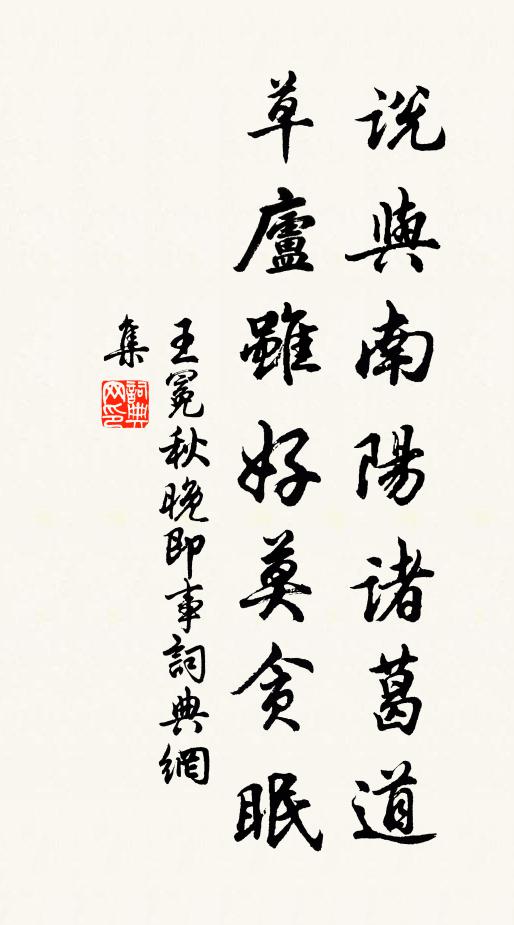 說與南陽諸葛道
草廬雖好莫貪眠
王冕秋晚即事詞典網
集
詞典
网印